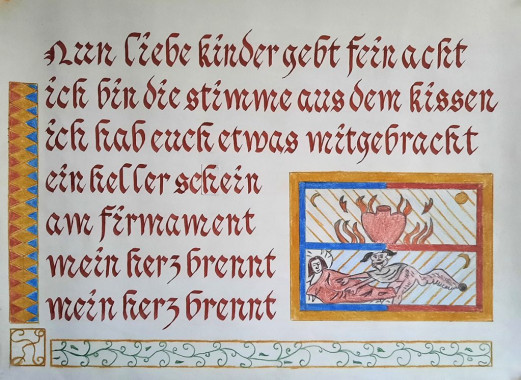 Nun liebe kinder gebt fein acht
ich bin die stimme aus dem kissen
ich hab euch etwas mitgebracht
ein heller schein
am firmament
mein herz brennt
mein herz brennt